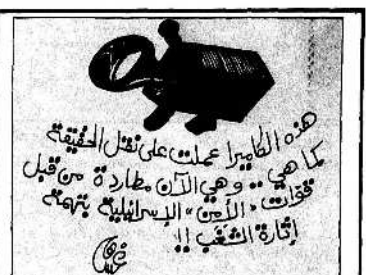 هذه الكاميرا عملت على نقل الحقيقة
كما هي .. وهي الآن مطاردة من قبل
قوات "الأمن" الإسرائيلية بتهمة
إثارة الشغب !!